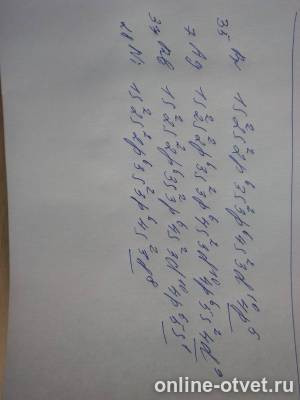 35 Br 1S²2S²2p⁶3S²3p⁶4S²3d¹⁰4p⁵
7 Ag 1S²2S²2p⁶3S²3p⁶4S²3d¹⁰4p⁶5S²4d⁹
37 Rb 1S²2S²2p⁶3S²3p⁶4S²3d¹⁰4p⁶5S¹
28 Ni 1S²2S²2p⁶3S²3p⁶4S²3d⁸
online-otvet.ru